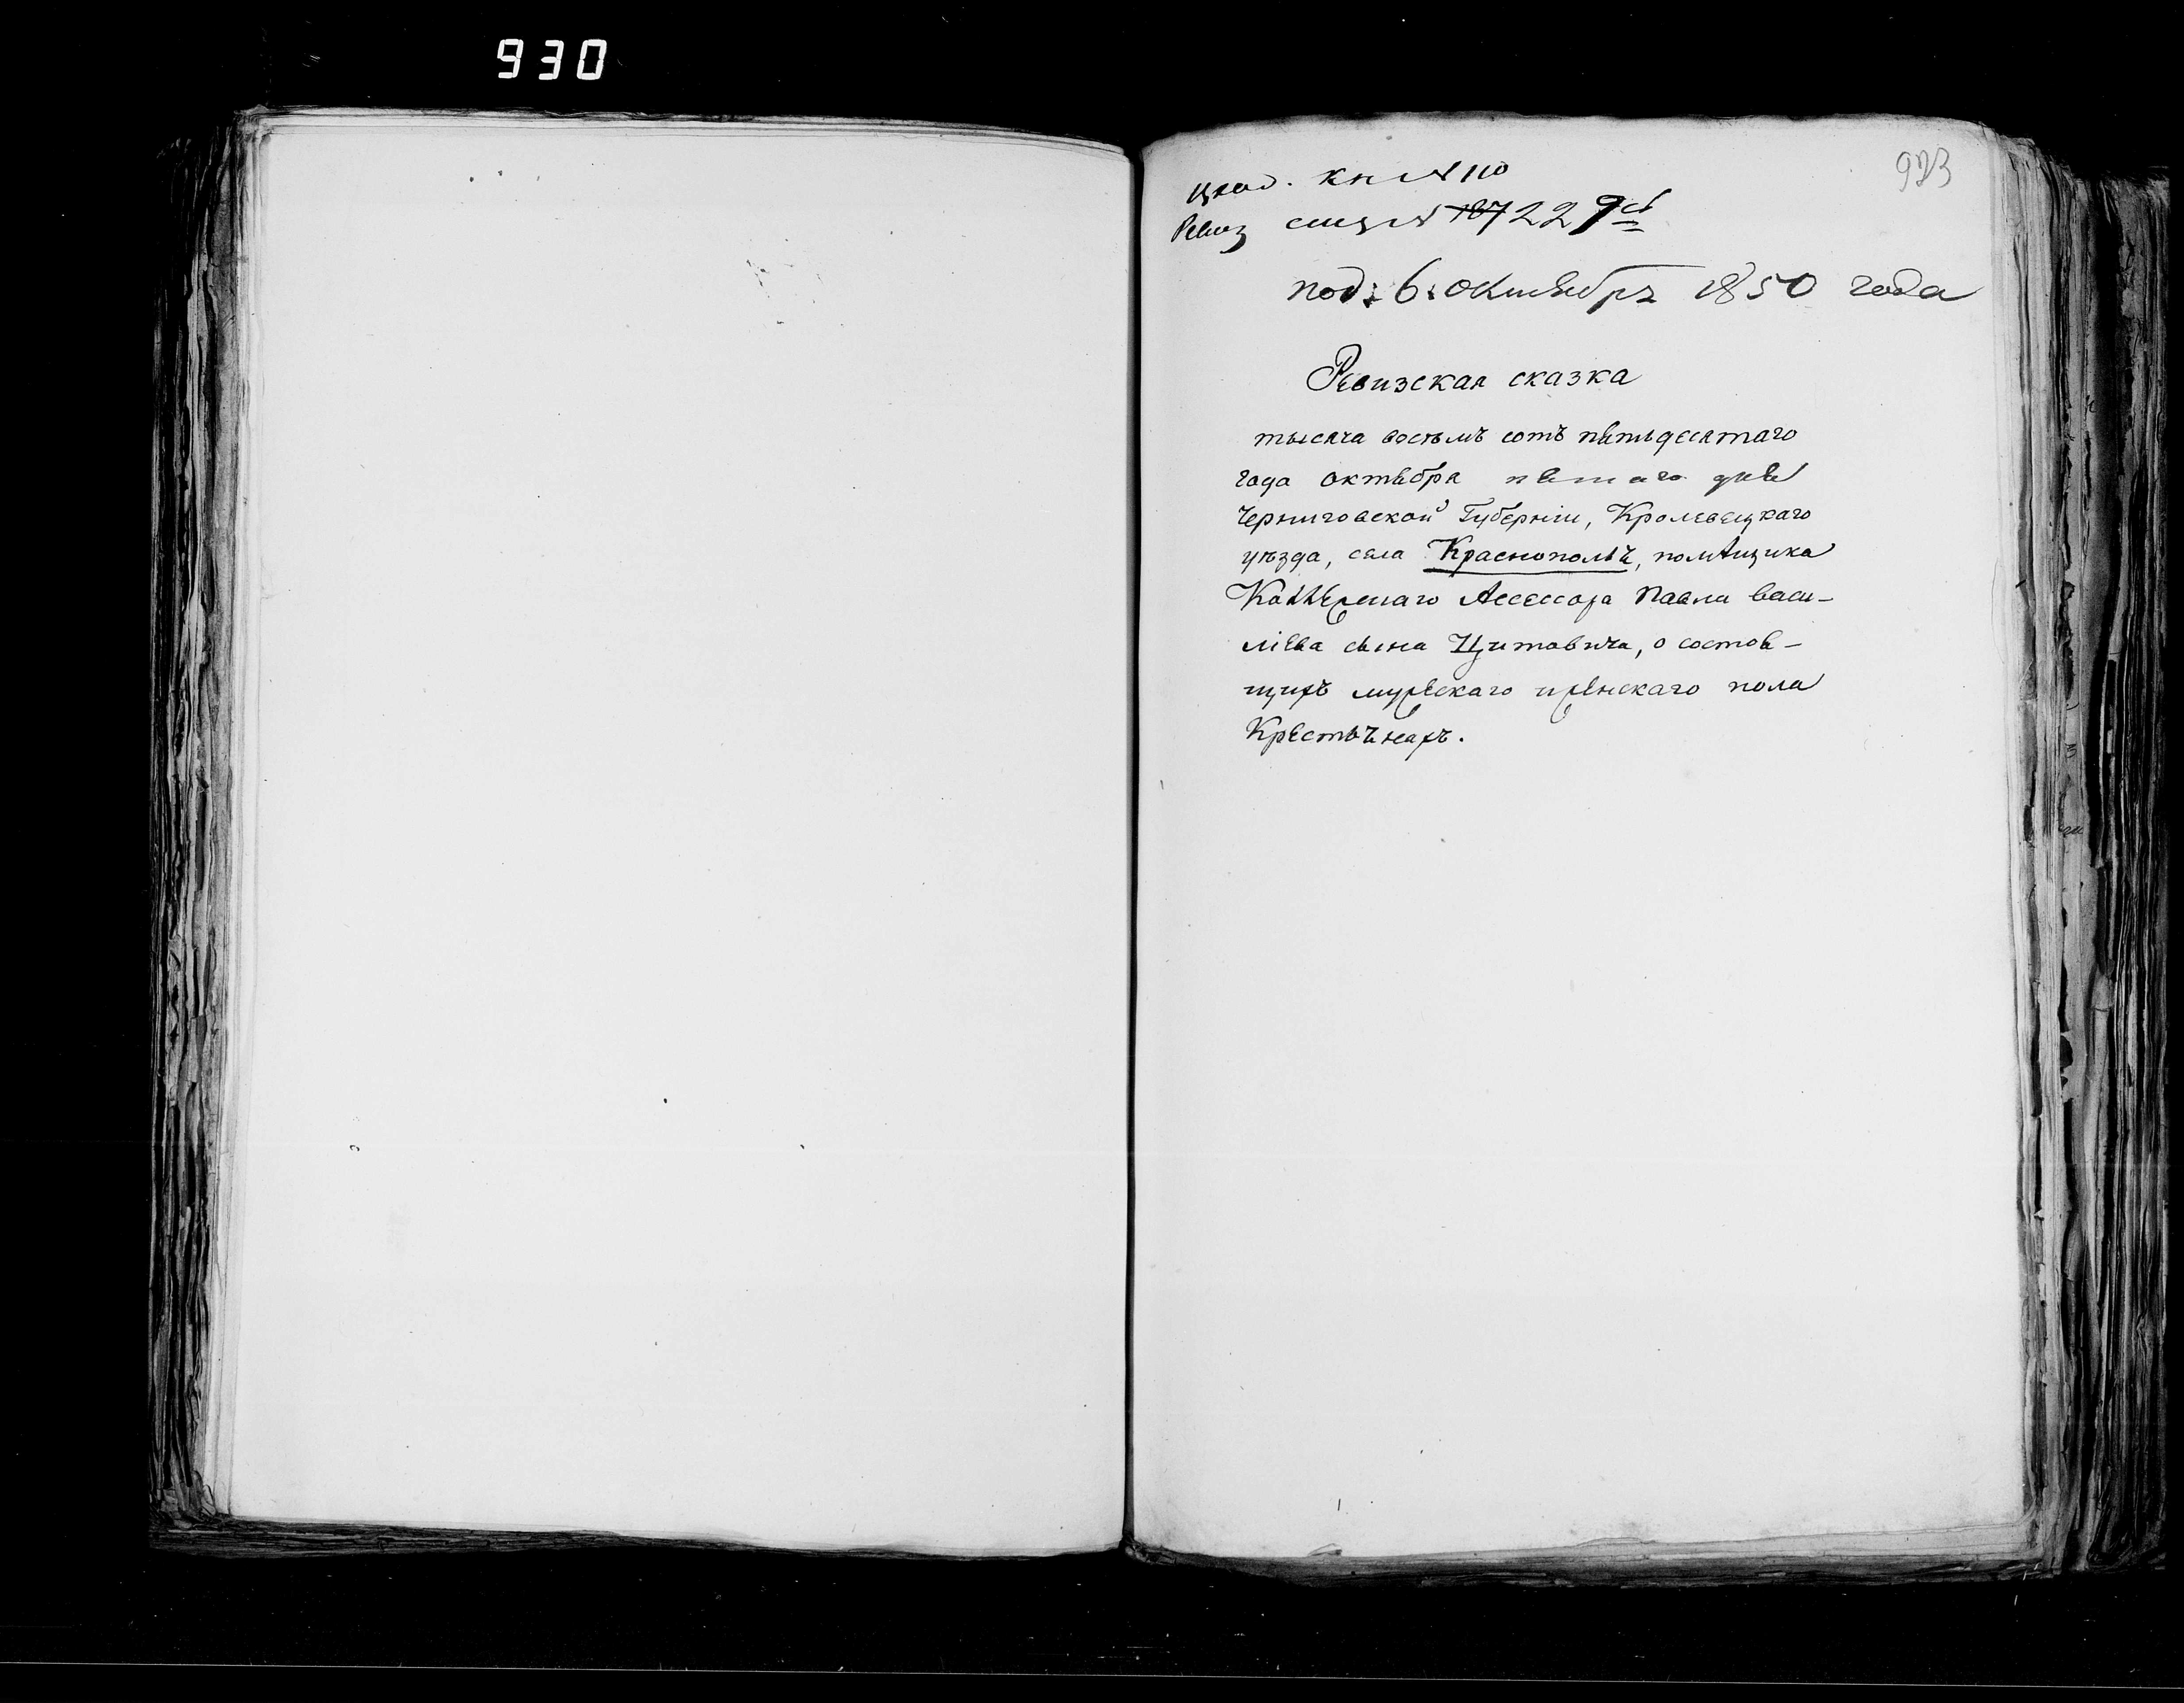 930
923
кн № 110
Ревиз № 187 229й
под: 6: Октября 1850 года
Ревизская сказка
тысяча восемъ сотъ пятьдесятаго
года октября пятаго дня
Черниговской Губерніи, Кролевецкаго
уѣзда, села Краснополья, помѣщика
Коллежскаго Асессора Павла Васи-
лієва сына Цитовича, о состоя-
щихъ мужескаго и женскаго пола
Крестьянахъ.